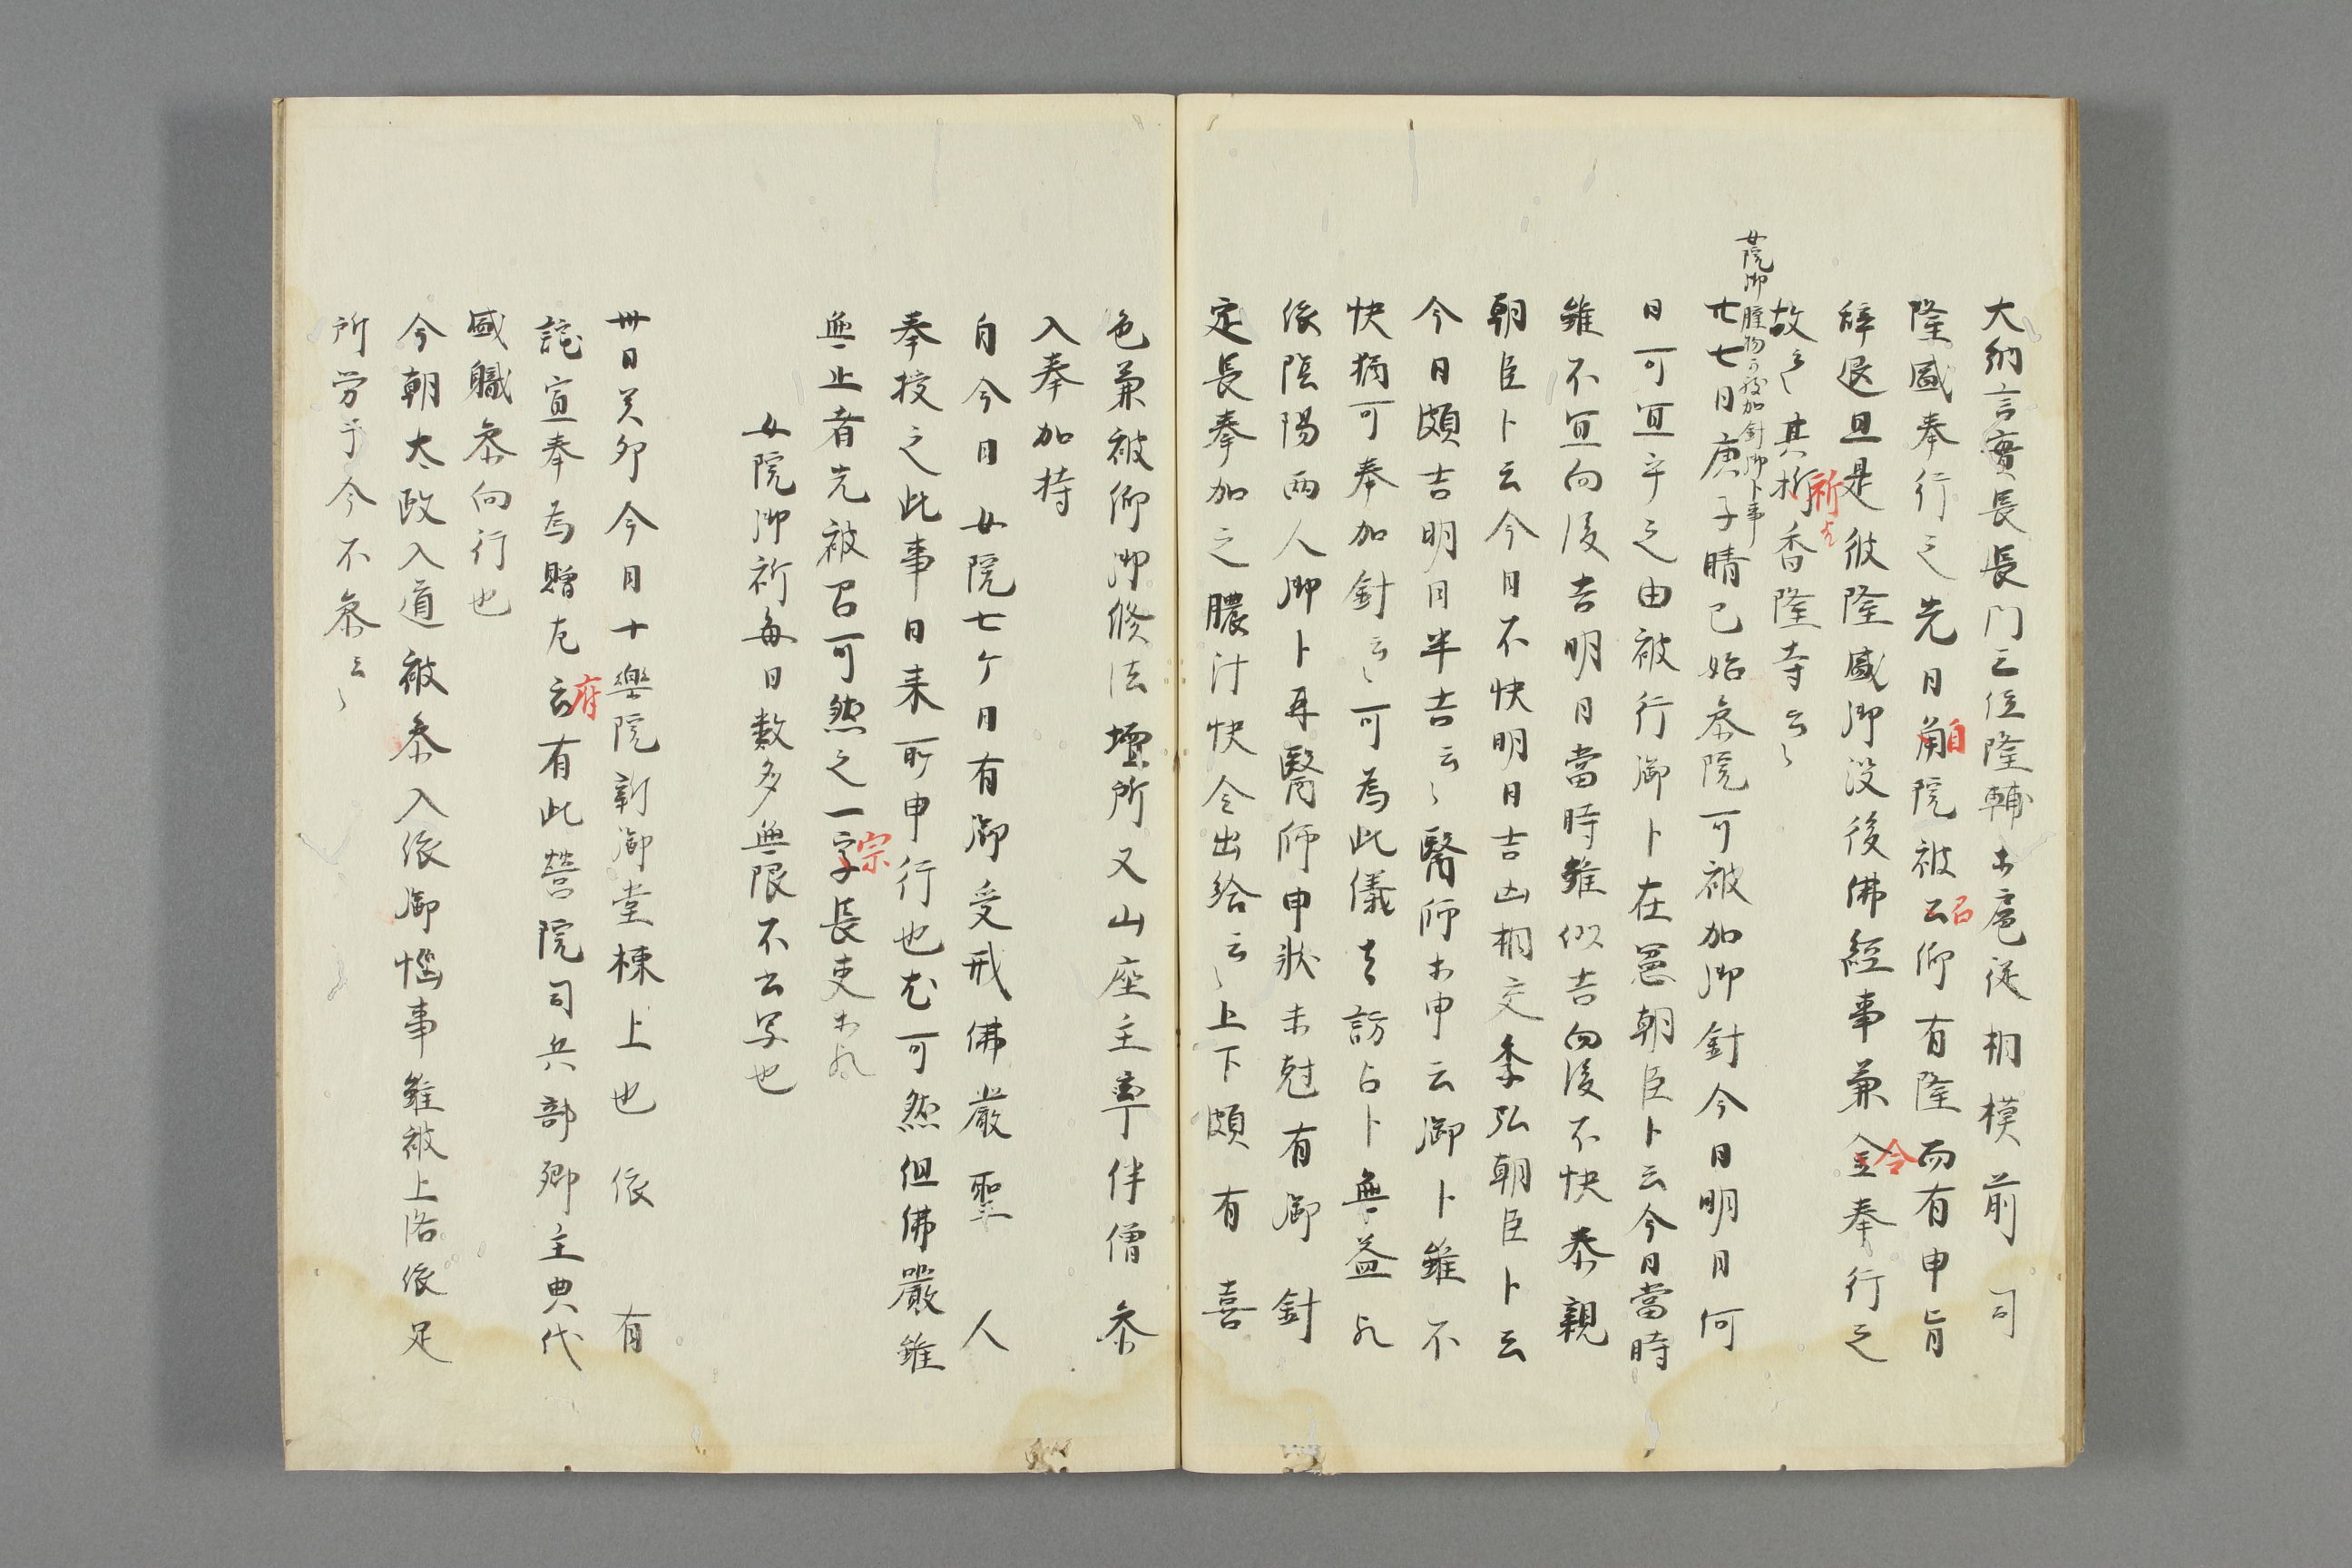 大納言實長長門三位隆輔等扈従相模前司
隆盛奉行之先日角院被云仰有隆而有申旨
自
召
辞退旦是彼隆盛卿没後佛経事兼金奉行之
令
故云々其析香隆寺云々
祈歟
女院御腫物可被加針御卜事
廿七日庚子晴已始参院可被加御針今日明日何
日可宜乎之由被行御卜在憲朝臣卜云今日當時
雖不宜向後吉明日當時雖似吉向後不快泰親
朝臣卜云今日不快明日吉凶相交季弘朝臣卜云
今日頗吉明日半吉云々醫師等申云御卜雖不
快猶可奉加針云々可為此儀者訪占卜無益凡
依陰陽両人御卜再醫師申状未尅有御針
定長奉加之膿汁快令出給云々上下頗有喜
色兼被仰御修法壇所又山座主率伴僧参
入奉加持
自今日女院七ケ日有御受戒佛厳聖人
奉授之此事日来所申行也尤可然但佛嚴雖
無止者先被召可然之一字長吏等凡
宗
女院御祈毎日数多無限不云写也
卅日癸卯今日十樂院新御堂棟上也依有
託宣奉為贈左云有此營院司兵部卿主典代
府
盛職参向行也
今朝太政入道被参入依御惱事雖被上洛依足
所労于今不参云々